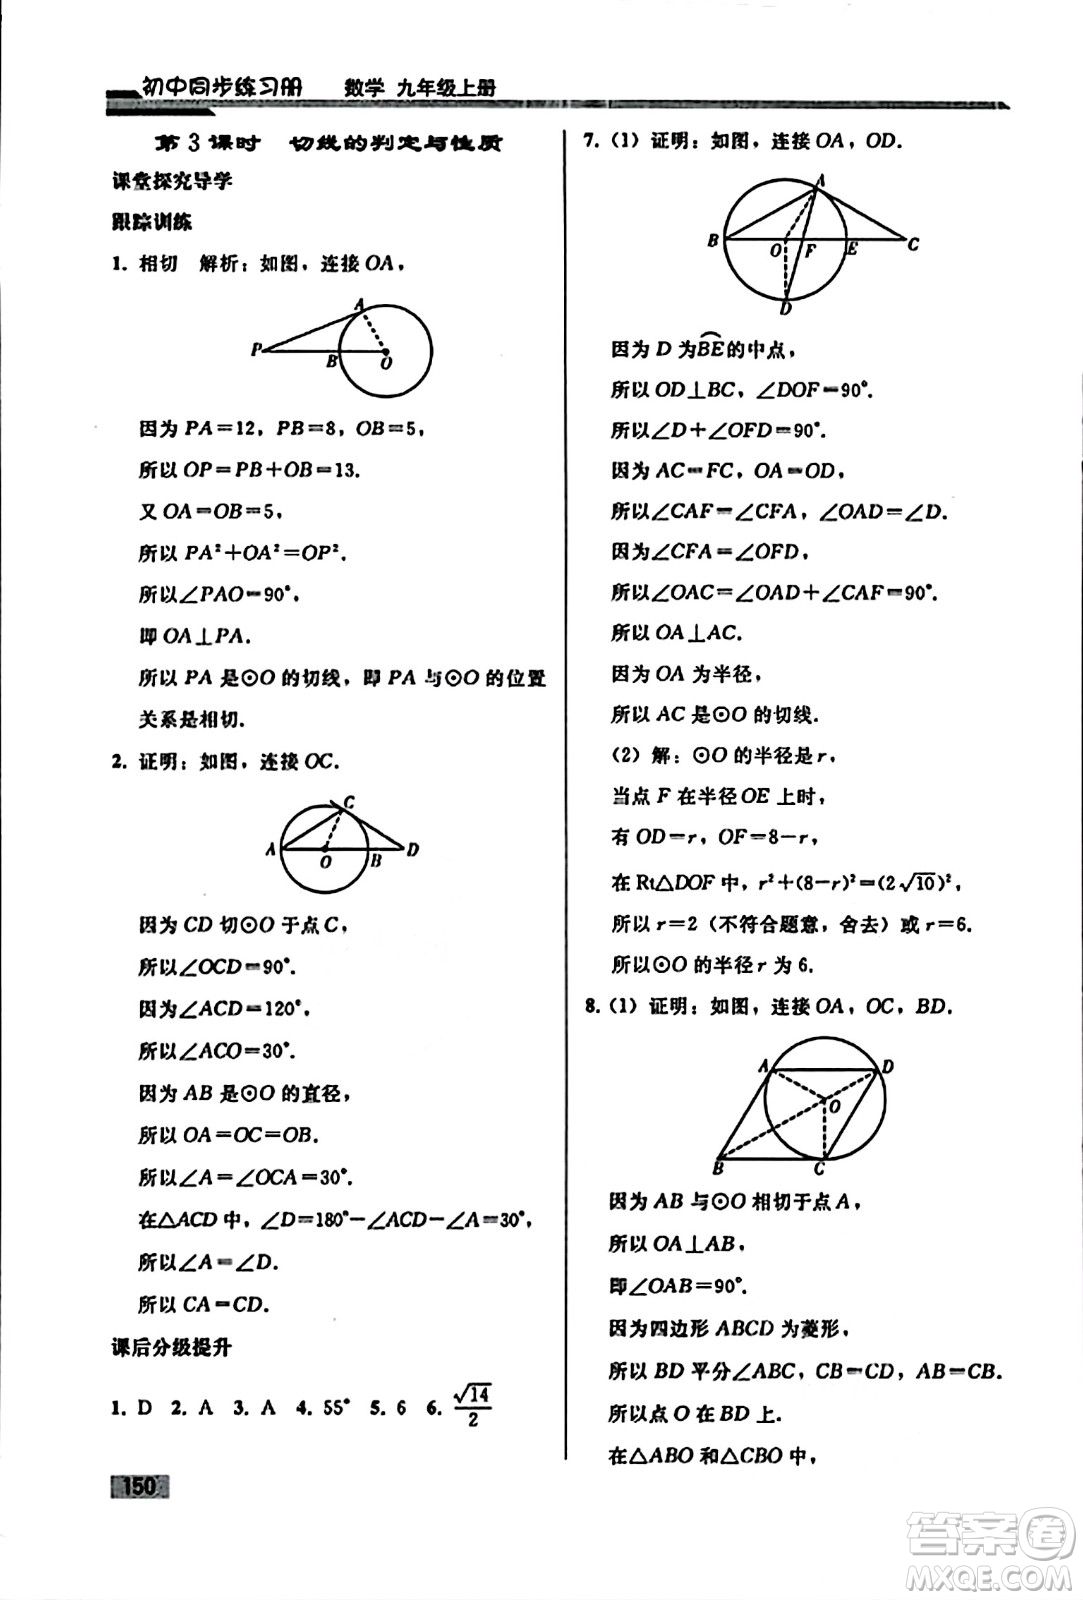 初中同步练习册 数学 九年级上册
第 3 课时 切线的判定与性质
课堂探究导学
跟踪训练
1. 相切 解析：如图，连接 OA，
A
P
B
O
因为 PA＝12，PB＝8，OB＝5，
所以 OP＝PB＋OB＝13.
又 OA＝OB＝5，
所以 PA²＋OA²＝OP².
所以∠PAO＝90°，
即 OA⊥PA.
所以 PA 是⊙O 的切线，即 PA 与⊙O 的位置
关系是相切.
2. 证明：如图，连接 OC.
C
A
O
B
D
因为 CD 切⊙O 于点 C，
所以∠OCD＝90°.
因为∠ACD＝120°，
所以∠ACO＝30°.
因为 AB 是⊙O 的直径，
所以 OA＝OC＝OB.
所以∠A＝∠OCA＝30°.
在△ACD 中，∠D＝180°－∠ACD－∠A＝30°，
所以∠A＝∠D.
所以 CA＝CD.
课后分级提升
1. D 2. A 3. A 4. 55° 5. 6 6. √14/2
150
7. (1) 证明：如图，连接 OA，OD.
A
B
O
F
E
C
D
因为 D 为BE的中点，
所以 OD⊥BC，∠DOF＝90°.
所以∠D＋∠OFD＝90°.
因为 AC＝FC，OA＝OD，
所以∠CAF＝∠CFA，∠OAD＝∠D.
因为∠CFA＝∠OFD，
所以∠OAC＝∠OAD＋∠CAF＝90°.
所以 OA⊥AC.
因为 OA 为半径，
所以 AC 是⊙O 的切线.
(2) 解：⊙O 的半径是 r，
当点 F 在半径 OE 上时，
有 OD＝r，OF＝8－r，
在 Rt△DOF 中，r²＋(8－r)²＝(2√10)²，
所以 r＝2（不符合题意，舍去）或 r＝6.
所以⊙O 的半径 r 为 6.
8. (1) 证明：如图，连接 OA，OC，BD.
A
D
O
B
C
因为 AB 与⊙O 相切于点 A，
所以 OA⊥AB，
即∠OAB＝90°.
因为四边形 ABCD 为菱形，
所以 BD 平分∠ABC，CB＝CD，AB＝CB.
所以点 O 在 BD 上.
在△ABO 和△CBO 中，
答案卷
MXQE.COM